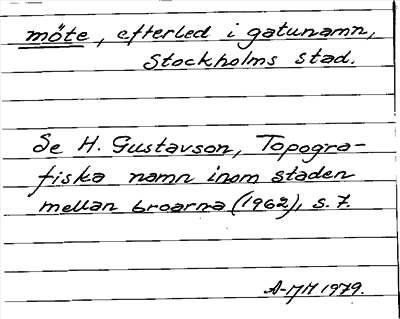 möte, efterled i gatunamn,
Stockholms stad.
Se H. Gustavson, Topogra-
fiska namn inom staden
mellan broarna (1962), s. 7.
A-MH 1979.